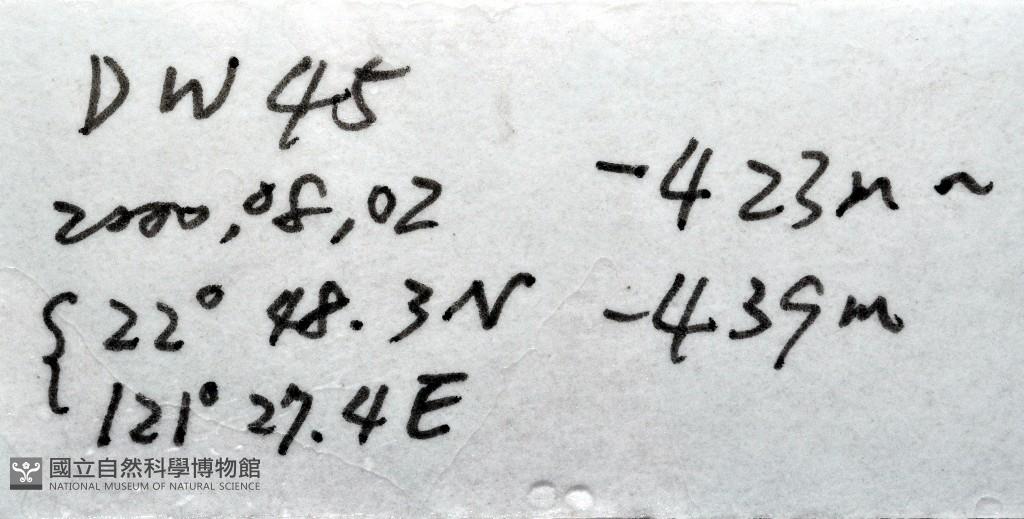 DW 45
2000,08,02
22° 48.3 N
121° 27.4 E
-423m ~
-439m
國立自然科學博物館
NATIONAL MUSEUM OF NATURAL SCIENCE